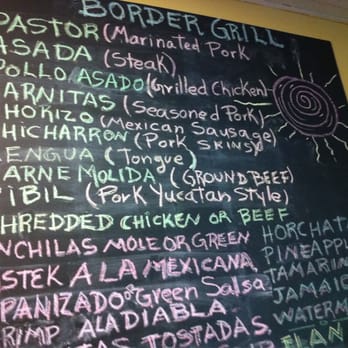 BORDER GRILL
PASTOR (Marinated Pork
ASADA (Steak)
POLLO ASADO (Grilled Chicken)
ARNITAS (Seasoned Pork)
HORIZO (Mexican Sausage)
HICHARRON (Pork SKINS)
ENGUA (Tongue)
ARNE MOLIDA (GROUND BEEF)
IBIL (Pork Yucatan Style)
HREDDED CHICKEN OR BEEF
NCHILAS MOLE OR GREEN
STEK A LA MEXICANA
PANIZADO or Green Salsa
RIMP ALADIABLA
AS TOSTADAS
HORCHATA
PINEAPPL
TAMARIN
JAMAIC
WATERM
FLAN